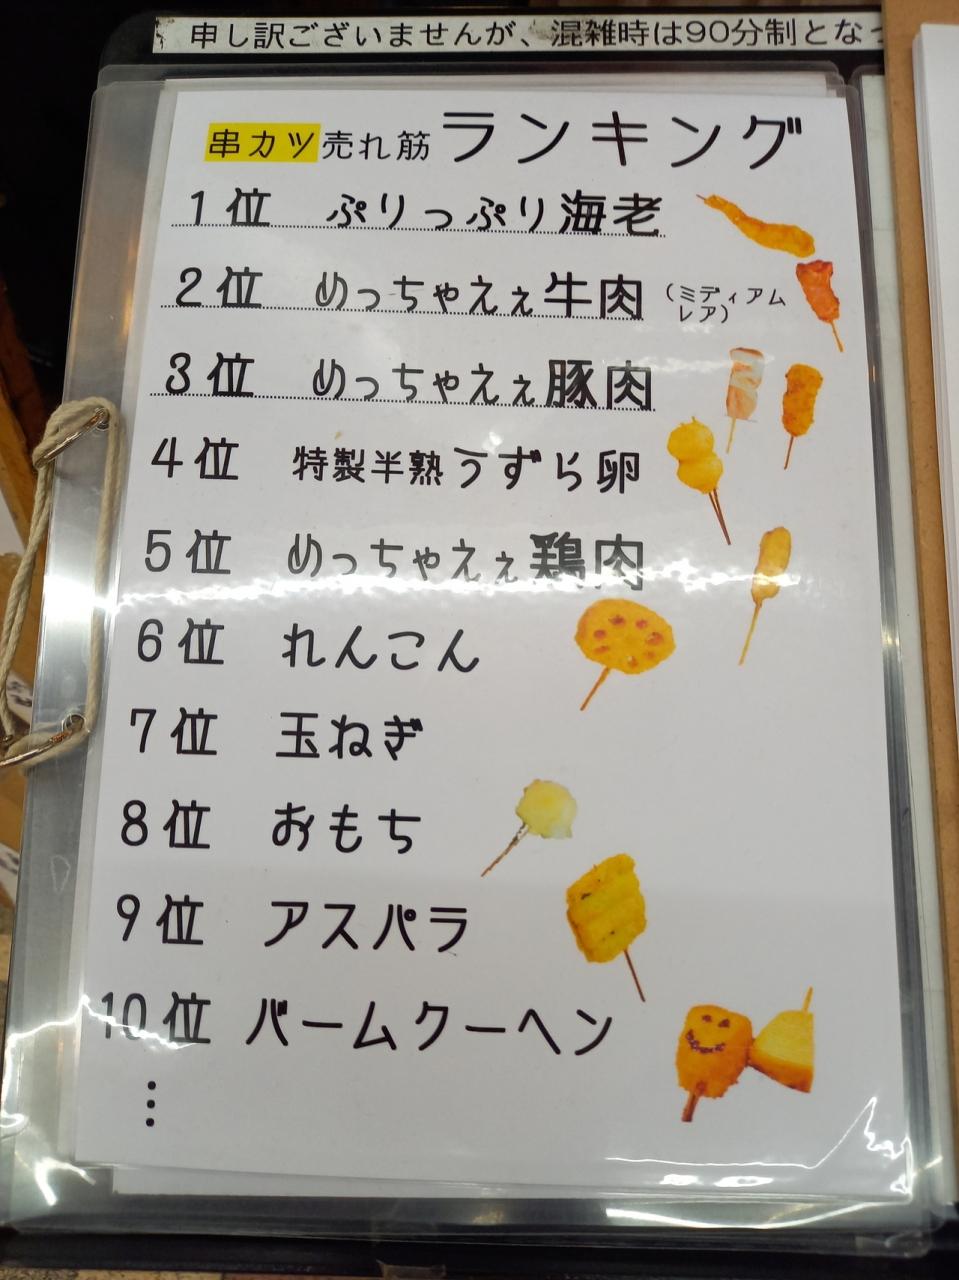 申し訳ございませんが、混雑時は90分制となっ
串カツ売れ筋ランキング
1位 ぷりっぷり海老
2位 めっちゃえぇ牛肉 (ミディアム
レア)
3位 めっちゃえぇ豚肉
4位 特製半熟うずら卵
5位 めっちゃえぇ鶏肉
6位 れんこん
7位 玉ねぎ
8位 おもち
9位 アスパラ
10位 バームクーヘン
⋮